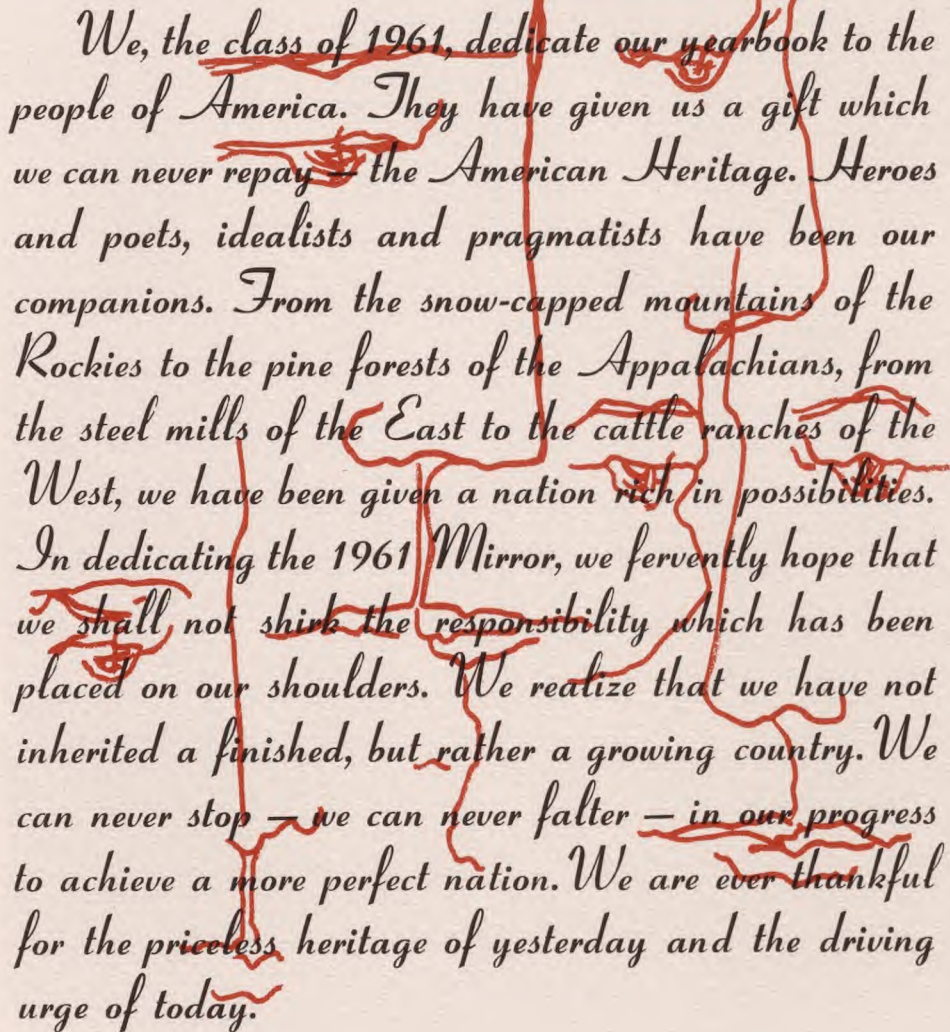 We, the class of 1961, dedicate our yearbook to the
people of America. They have given us a gift which
we can never repay — the American Heritage. Heroes
and poets, idealists and pragmatists have been our
companions. From the snow-capped mountains of the
Rockies to the pine forests of the Appalachians, from
the steel mills of the East to the cattle ranches of the
West, we have been given a nation rich in possibilities.
In dedicating the 1961 Mirror, we fervently hope that
we shall not shirk the responsibility which has been
placed on our shoulders. We realize that we have not
inherited a finished, but rather a growing country. We
can never stop — we can never falter — in our progress
to achieve a more perfect nation. We are ever thankful
for the priceless heritage of yesterday and the driving
urge of today.